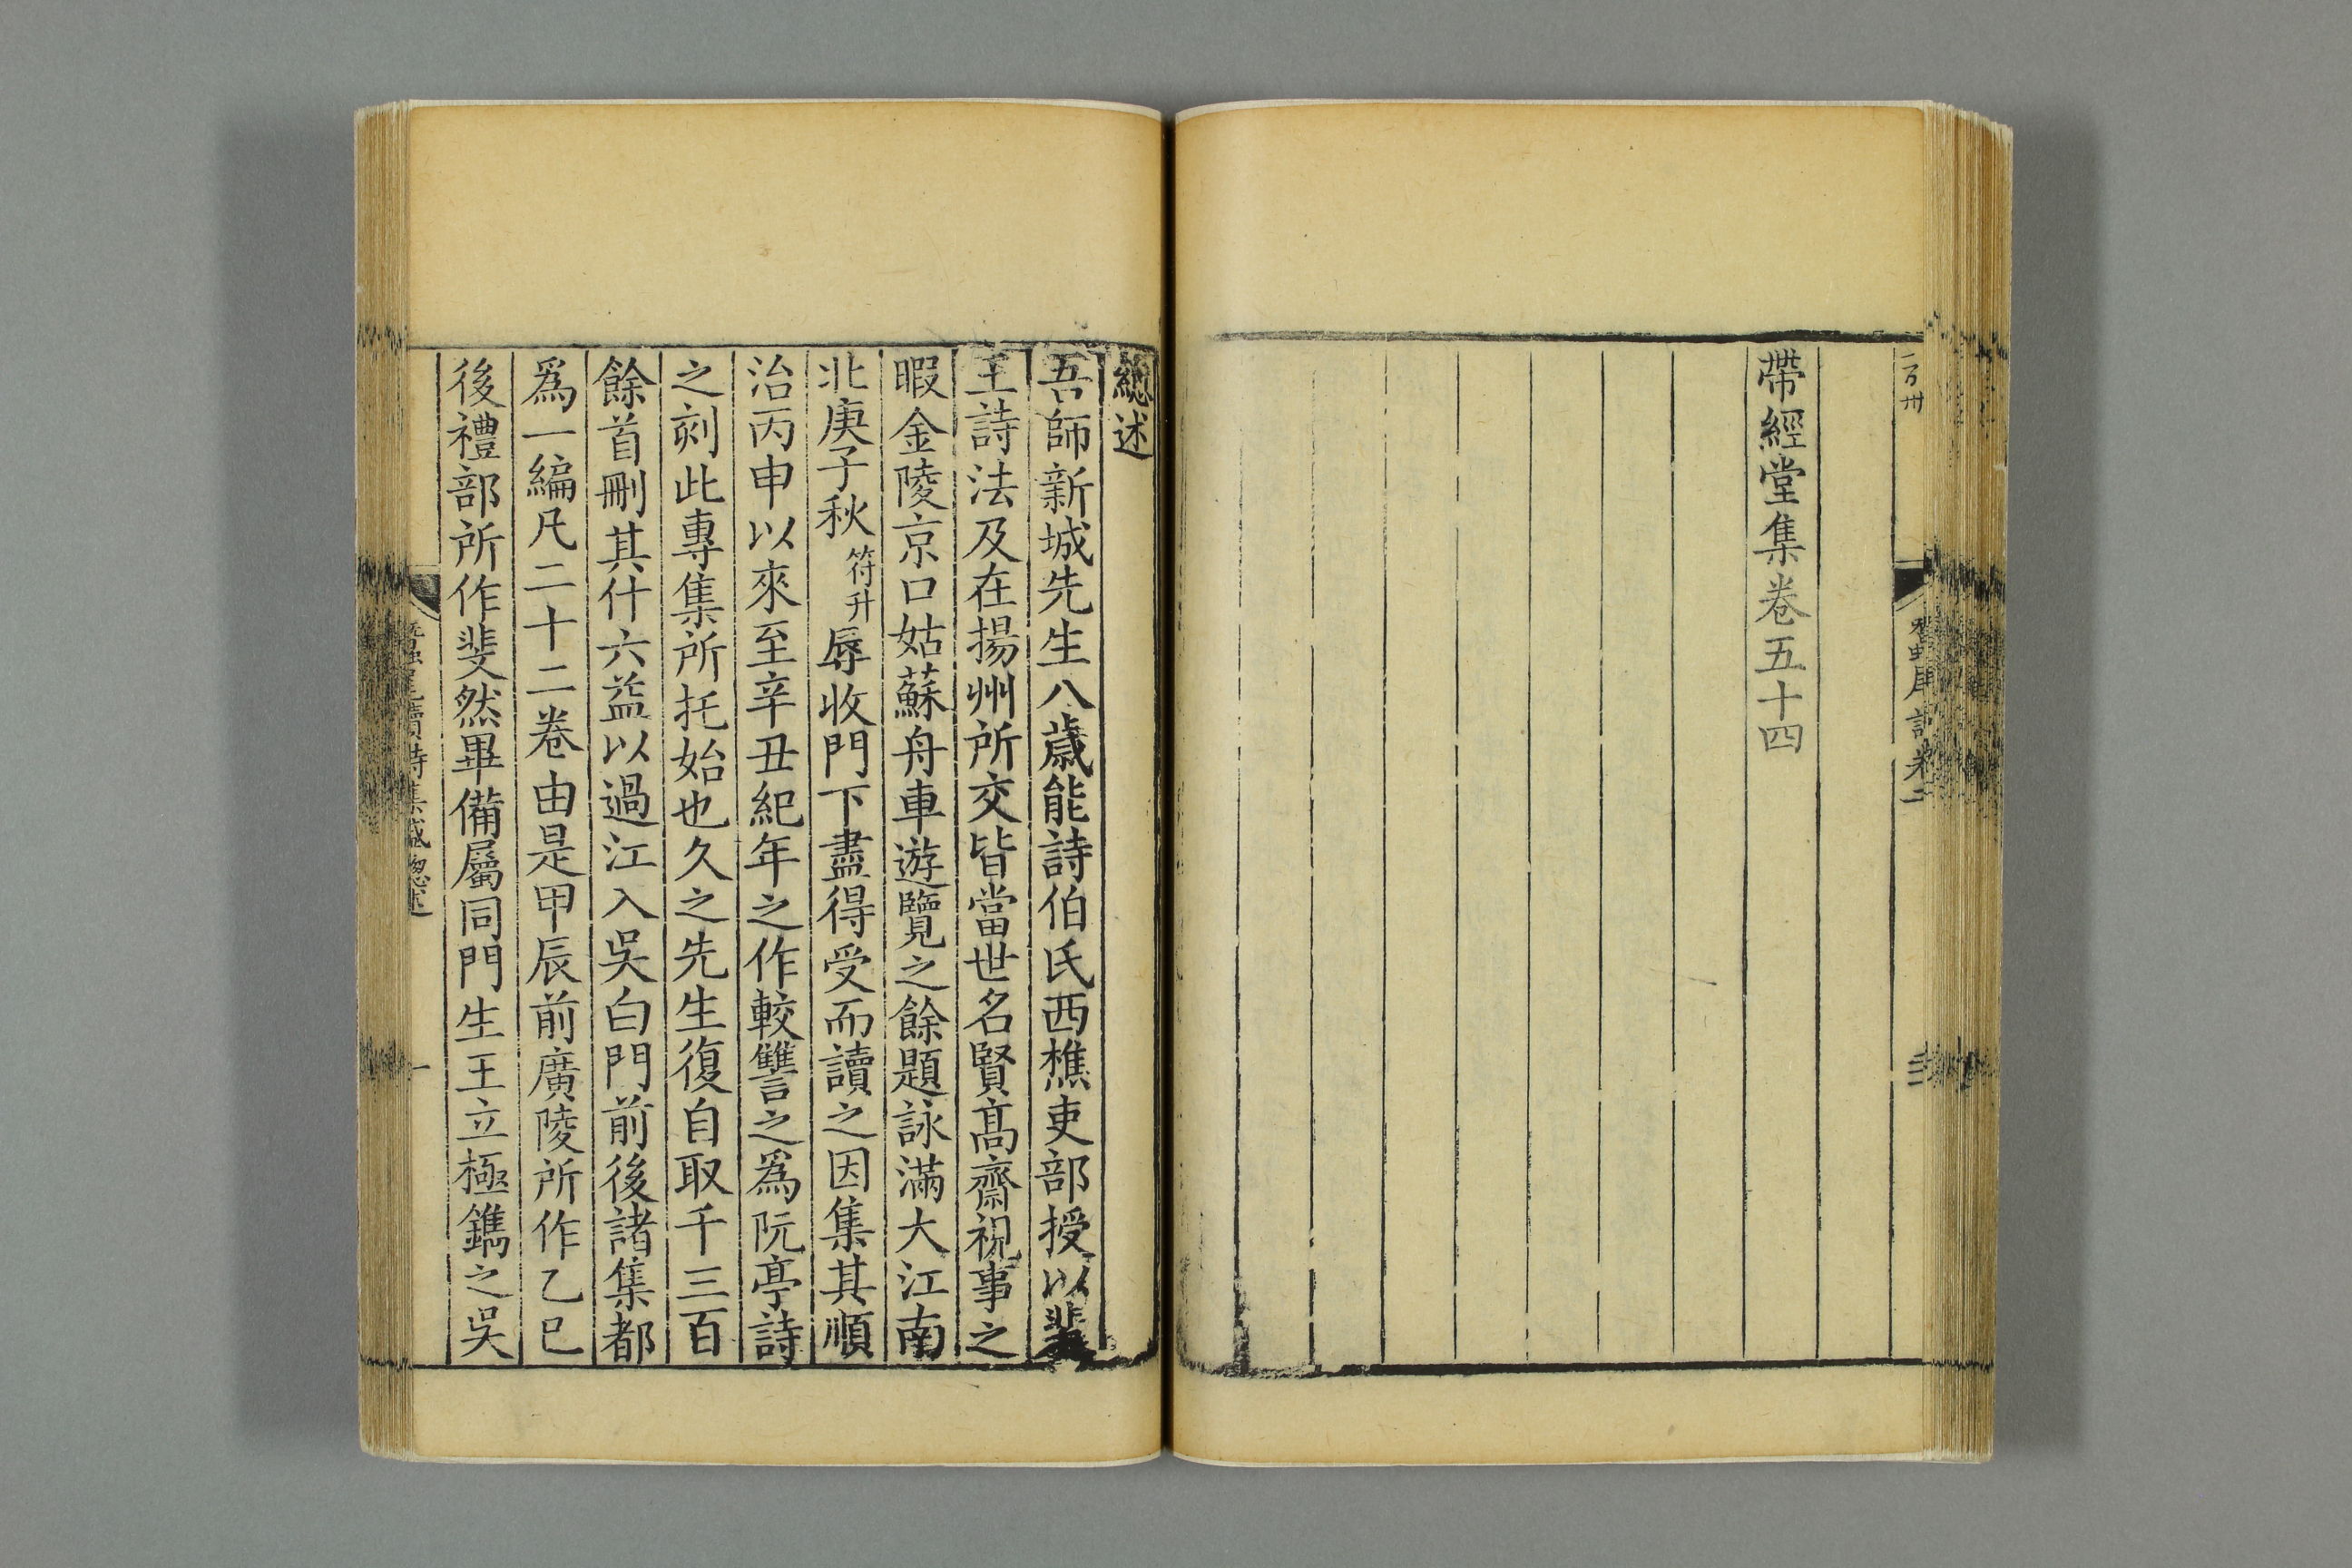 帶經堂集卷五十四
總述
吾師新城先生八歲能詩伯氏西樵吏部授以裴
王詩法及在揚州所交皆當世名賢高齋視事之
暇金陵京口姑蘇舟車遊覽之餘題詠滿大江南
北庚子秋符升辱收門下盡得受而讀之因集其順
治丙申以來至辛丑紀年之作較讐之爲阮亭詩
之刻此專集所托始也久之先生復自取千三百
餘首刪其什六益以過江入吳白門前後諸集都
爲一編凡二十二卷由是甲辰前廣陵所作乙巳
後禮部所作斐然畢備屬同門生王立極鐫之吳